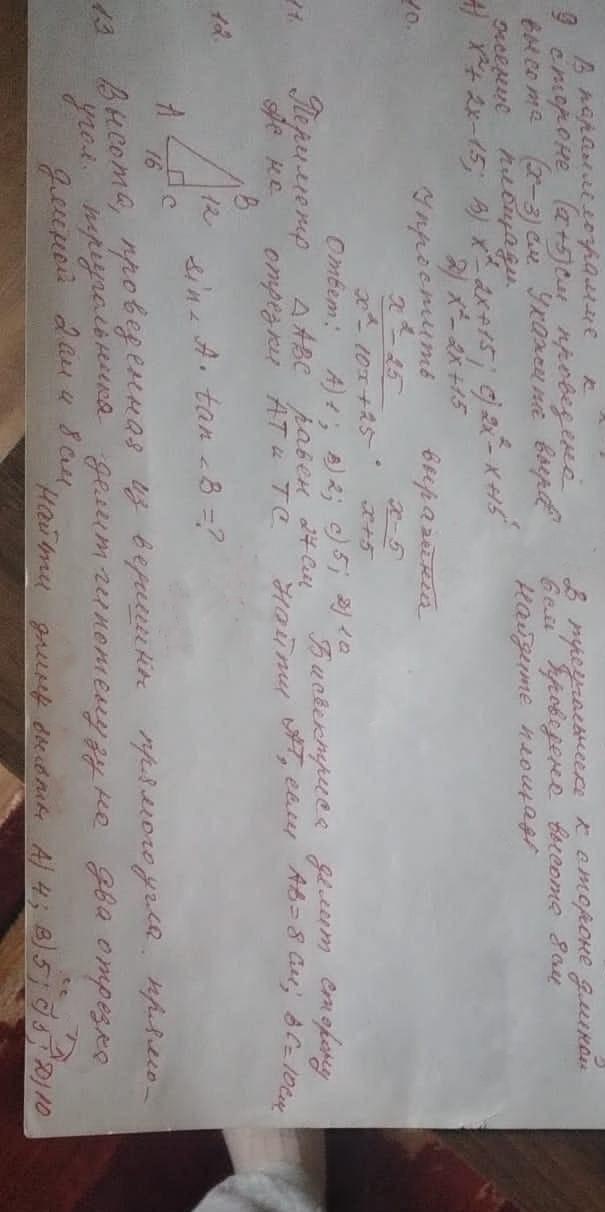 9 В параллелограмме к
стороне (x+5)см проведена
высота (x-3) см Укажите выра-
жение площади.
A) x²+2x-15; B) x²-2x+15; C) 2x²-x+15
D) x²-2x+15
В треугольнике к стороне длиной
6см проведена высота 8см
Найдите площадь
10. Упростить выражения
x²-25 / x²-10x+25 · x-5 / x+5
Ответ: A) 1; B) 2; C) 5; D) 10
11. Периметр △ABC равен 27см Биссектриса делит сторону
AC на отрезки AT и TC. Найти AT, если AB=8 см; BC=10см
12. B
A 16 C 12 sin∠A · tan∠B=?
13 Высота, проведенная из вершины прямого угла. прямо-
угол. треугольника делит гипотенузу на два отрезка
длиной 2см и 8см Найти длину высоты A) 4; B) 5; C) 8; D) 10